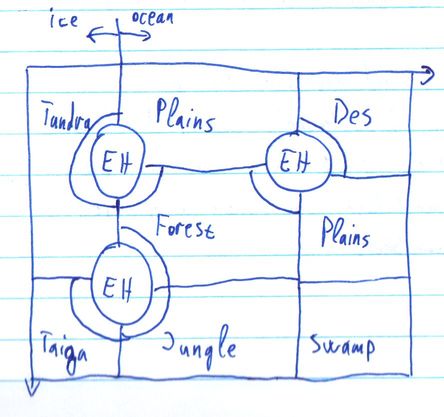 ice ocean
Tundra Plains Des
EH EH
Forest Plains
EH
Taiga Jungle Swamp